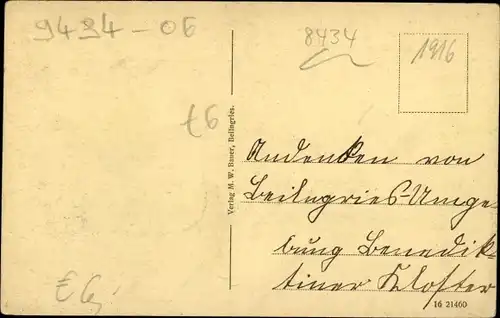 9494-06
8434
1916
£6
Verlag M. W. Bauer, Beilngries.
Andenken von
Beilngries-Umge-
bung Benedik-
tiner Kloster
€6
16 21460